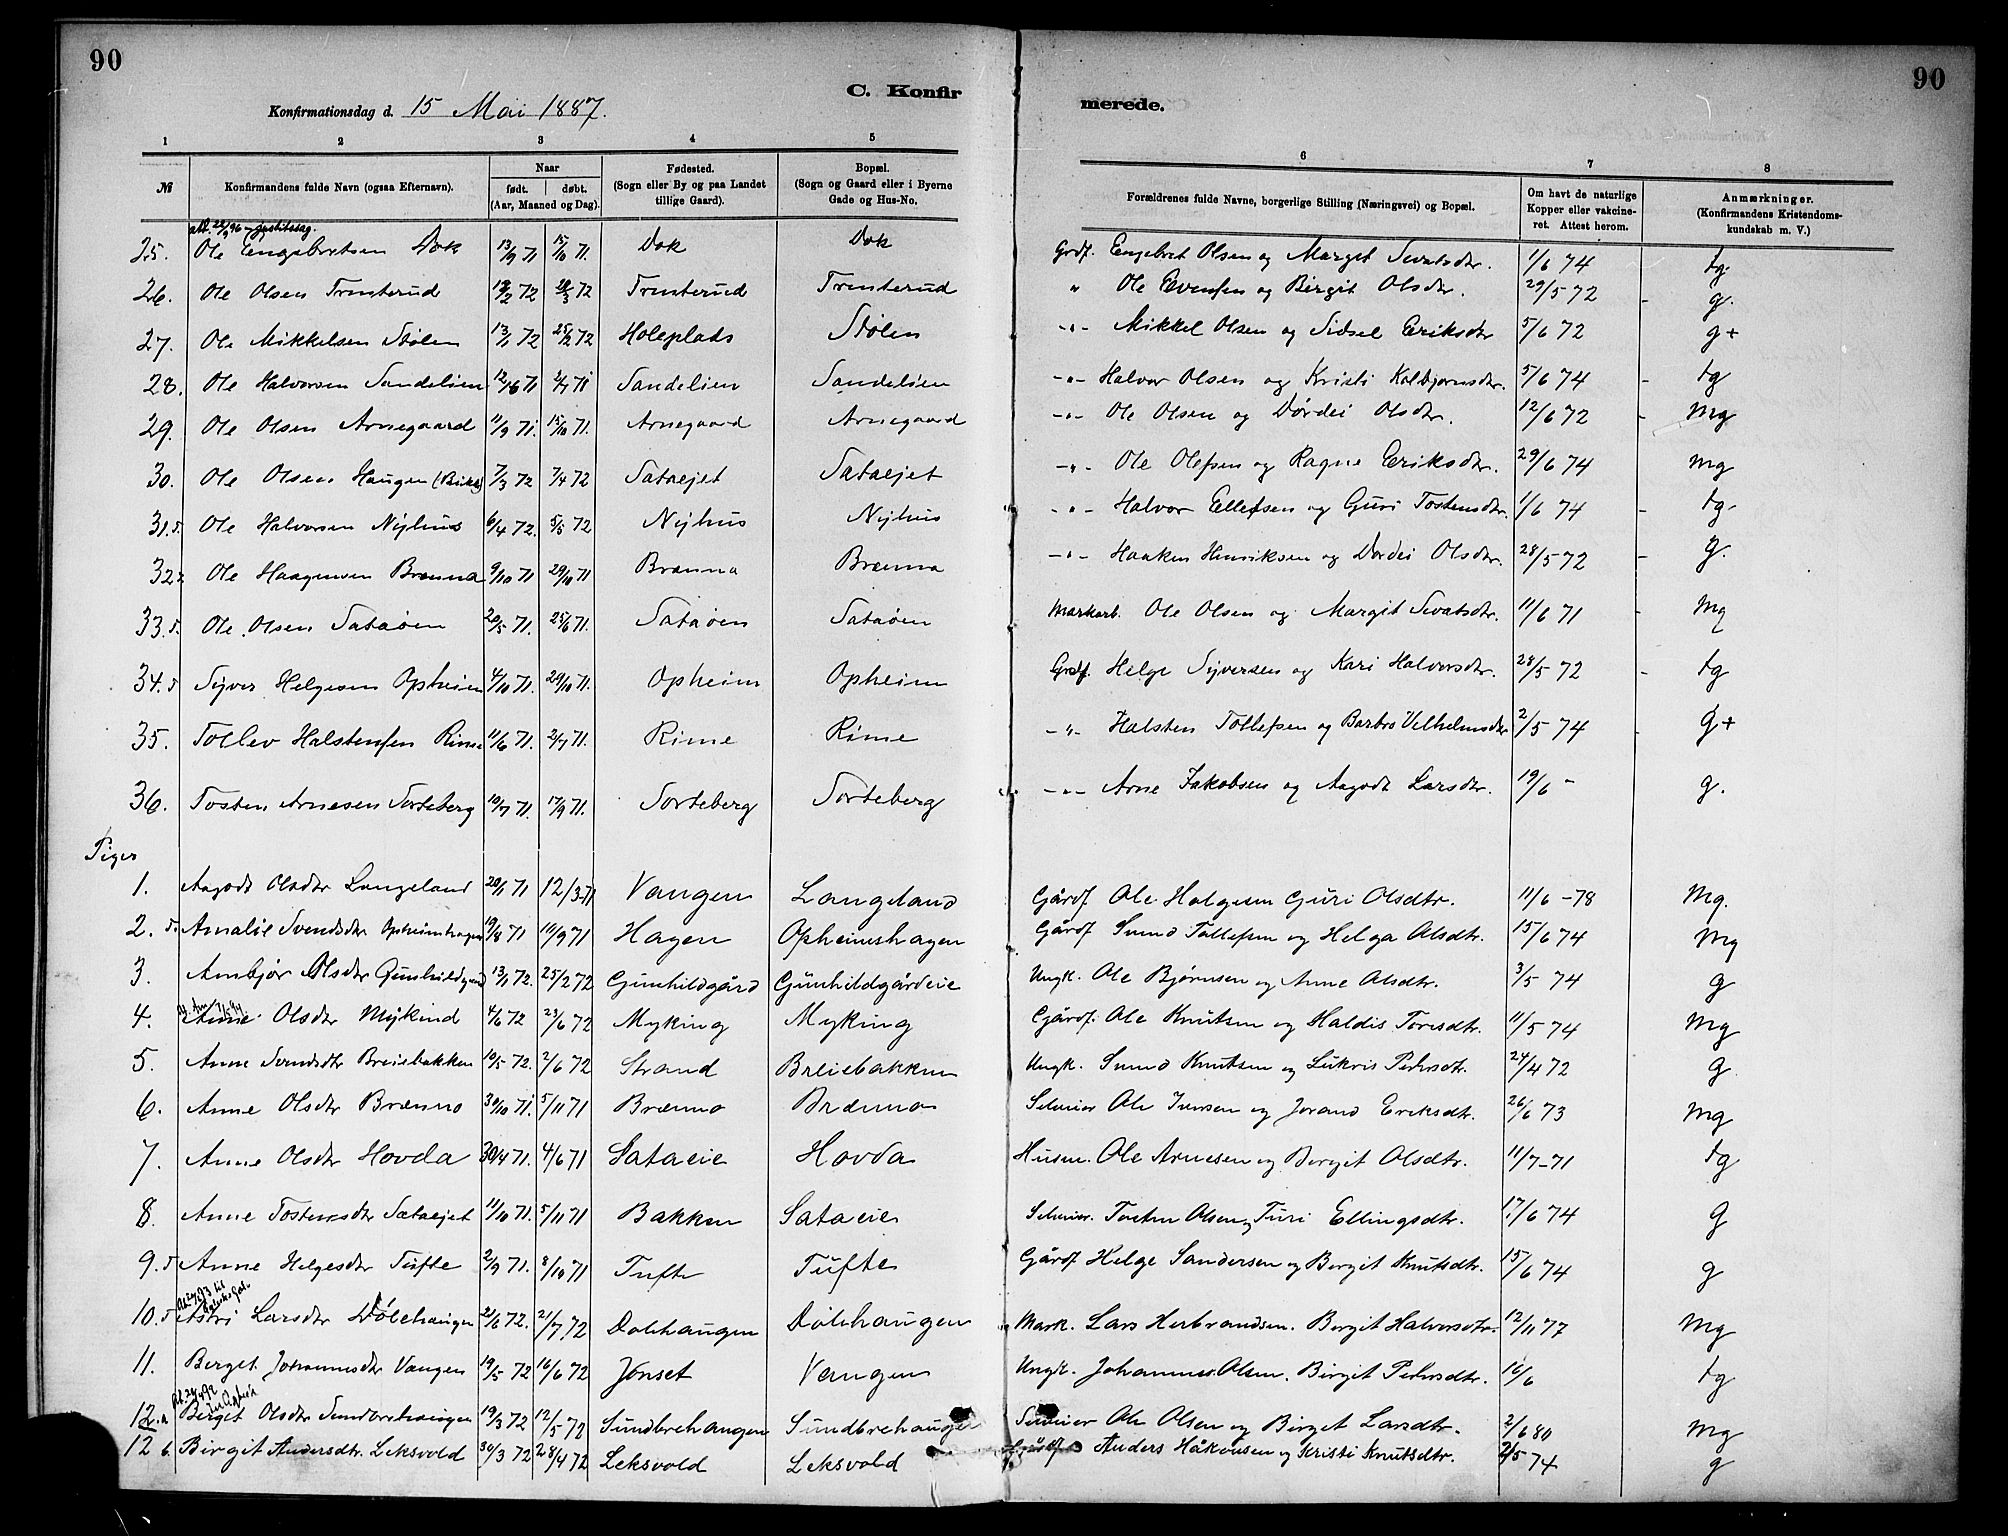 90
90
C. Konfirmerede.
Konfirmationsdag d. 15 Mai 1887.
1 2 3 4 5 6 7 8
№ Konfirmandens fulde Navn (ogsaa Efternavn). Naar født. døbt. (Aar, Maaned og Dag). Fødested. (Sogn eller By og paa Landet tillige Gaard). Bopæl. (Sogn og Gaard eller i Byerne Gade og Hus-No. Forældrenes fulde Navne, borgerlige Stilling (Næringsvei) og Bopæl. Om havt de naturlige Kopper eller vakcineret. Attest herom. Anmærkninger. (Konfirmandens Kristendomskundskab m. V.)
25. Ole Engebretsen Dok 13/9 71 15/10 71. Dok Dok Grdf. Engebret Olsen og Marget Sivatsdtr. 1/6 74 tg.
26. Ole Olsen Trinterud 72 72 Trinterud Trinterud " Ole Evensen og Birgit Olsdtr. 29/5 72 - g.
27. Ole Mikkelsen Stølen 13/1 72 25/2 72 Holeplads Stølen -"- Mikkel Olsen og Sidsel Eriksdtr 5/6 72 g+
28. Ole Halvorsen Sandelien 71 71 Sandelien Sandelien -"- Halvor Olsen og Kristi Kolbjørnsdtr. 5/6 74 - tg
29. Ole Olsen Arnegaard 11/9 71. 15/10 71. Arnegaard Arnegaard -"- Ole Olsen og Dordei Olsdtr. 12/6 72 - Mg
30. Ole Olsen Haugen 7/3 72 7/4 72 Sataejet Sataejet -"- Ole Olesen og Ragne Eriksdtr. 29/6 74 mg
31. 5 Ole Halvorsen Nyhus 6/4 72. 5/5 72 Nyhus Nyhus -"- Halvor Ellefsen og Guri Tostensdtr. 1/6 74 - tg.
32 Ole Haagensen Brænna 9/10 71 29/10 71 Brænna Brænna -"- Haaken Henriksen og Dordei Olsdtr. 28/5 72 - g.
33. 5. Ole Olsen Sataøen 20/5 71. 25/6 71. Sataøen Sataøen Markarb. Ole Olsen og Margit Sivatsdtr. 11/6 71 - Mg
34. 5 Syver Helgesen Opheim 4/10 71. 29/10 71. Opheim Opheim Grdf. Helge Syversen og Kari Halvorsdtr. 28/5 72 - tg
35. Tollev Halstensen Rime 11/6 71. 2/7 71. Rime Rime -"- Halsten Tollefsen og Barbro Velhelmsdtr 2/5 74 - g+
36. Tosten Arnesen Sorteberg 10/7 71. 17/9 71. Sorteberg Sorteberg -"- Arne Jakobsen og Aagodt Larsdtr. 19/6 - g.
Piger
1. Aagodt Olsdtr Langeland 20/1 71 12/3 71 Vangen Langeland Gårdf Ole Helgesen Guri Olsdtr. 11/6 -78 Mg.
2. 5. Amalie Svendsdtr Opheimshagen 19/8 71 10/9 71 Hagen Opheimshagen Gårdf Svend Tollefsen og Helga Olsdtr. 15/6 74 Mg
3. Ambjør Olsdtr Gunhildgård 13/1 72. 25/2 72 Gunhildgård Gunhildgårdeie Ungk. Ole Bjørnsen og Anne Olsdtr. 3/5 74 g
4. Anne Olsdtr Mykind 4/6 72 23/6 72 Myking Myking Gårdf. Ole Knutsen og Haldis Toresdtr. 11/5 74 Mg
5. Anne Svendsdtr Breiebakken 10/5 72. 2/6 72 Strand Breiebakken Ungk. Svend Knutsen og Lukris Pedersdtr. 24/4 72 g
6. Anne Olsdtr Brænno 30/10 71. 5/11 71 Brænno Brænna Selveier Ole Iversen og Jorand Eriksdtr. 26/6 73 Mg
7. Anne Olsdtr Hovda 30/4 71. 4/6 71 Sataeie Hovda Husm. Ole Arnesen og Bergit Olsdtr. 11/7-71 tg
8. Anne Tostensdtr Sataejet 11/10 71. 5/11 71 Bakken Sataeie Selveier. Tosten Olsen og Turi Ellingsdtr. 17/6 74 g
9. 5 Anne Helgesdtr Tufte 2/9 71. 8/10 71 Tufte Tufte Gårdf Helge Sandersen og Bergit Knutsdtr. 15/6 74 g
10. 5 Astri Larsdtr Dølehaugen 2/6 72. 21/7 72 Dølehaugen Dølehaugen Mark. Lars Herbrandsen. Bergit Halvorsdtr. 12/11 77 Mg
11. Berget Johannesdtr Vangen 19/5 72 16/6 72 Jonset Vangen Ungk. Johannes Olsen. Birgit Pedersdtr. 16/6 tg
12. a Birgit Olsdtr Sundbrehaugen 19/3 72 12/5 72 Sundbrehaugen Sundbrehaugen Selveier Ole Olsen og Birget Larsdtr. 2/6 80 Mg
12 b. Birgit Andersdtr. Leksvold 30/3 72 28/4 72 Leksvold Leksvold Gårdf Anders Håkonsen og Kristi Knutsdtr. 2/5 74 g